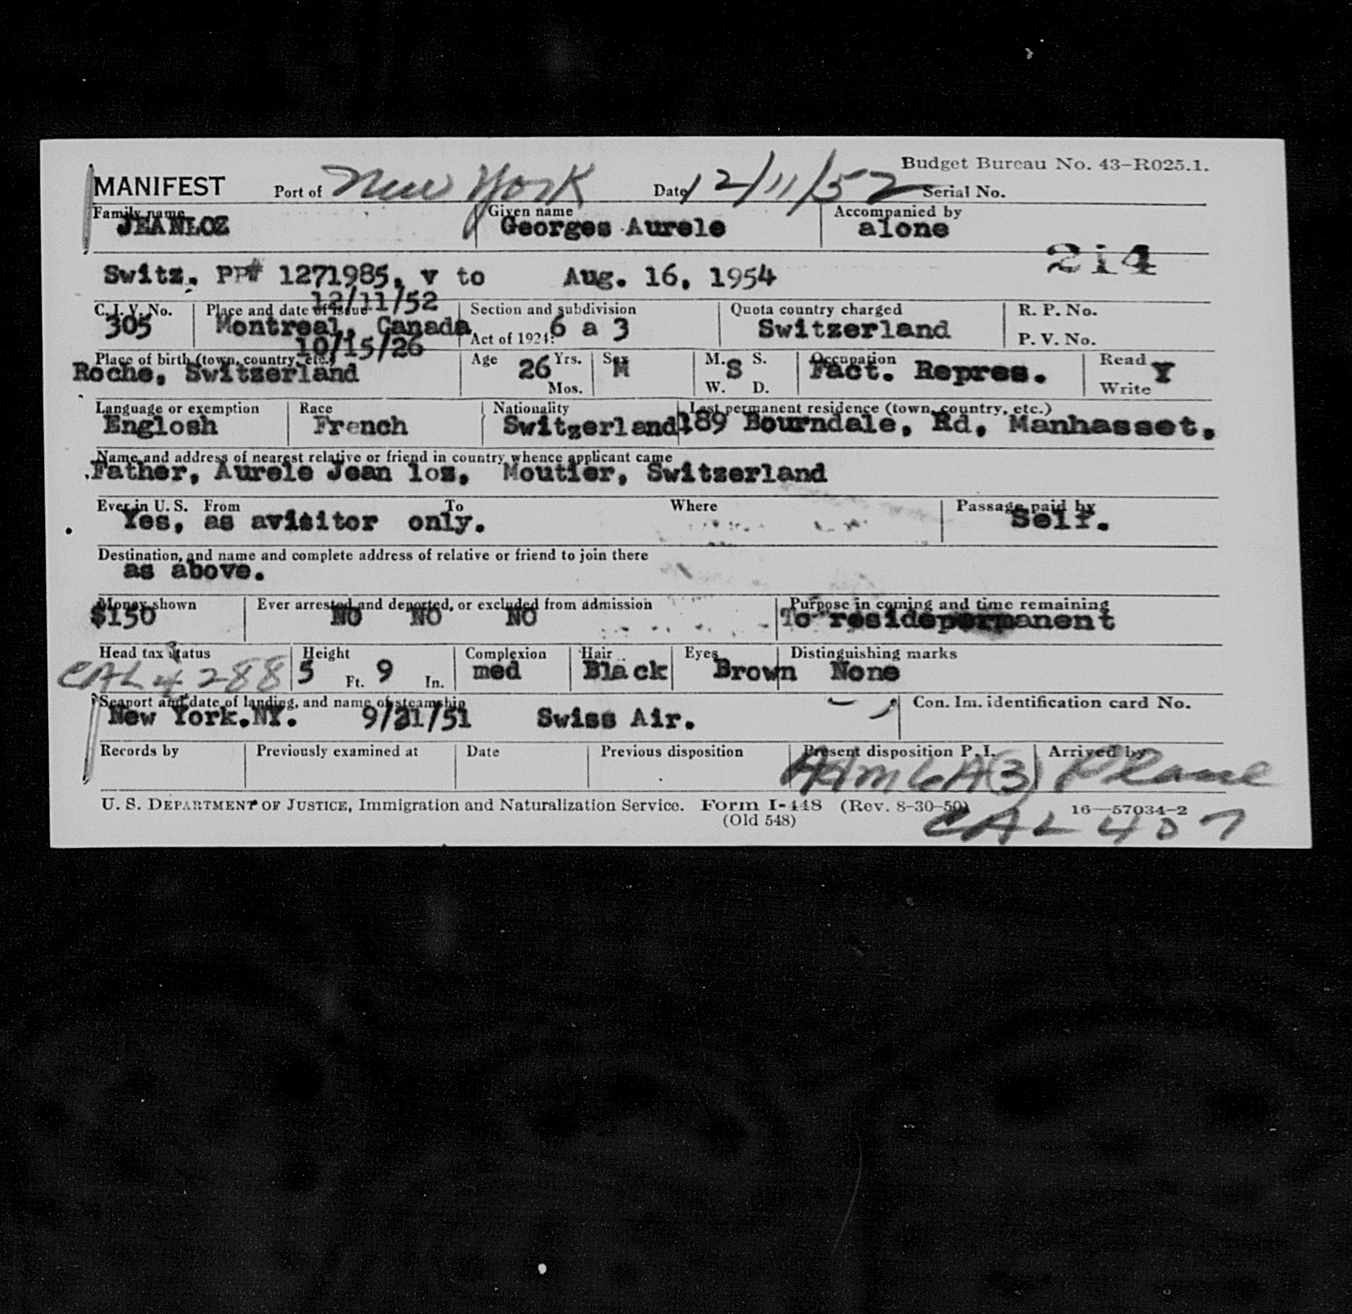 Budget Bureau No. 43-R025.1.
MANIFEST Port of New York Date 12/11/52 Serial No.
Family name Given name Accompanied by
JEANLOZ Georges Aurele alone
214
Switz. PP# 1271985, v to Aug. 16, 1954
12/11/52
C.I.V. No. Place and date of issue Section and subdivision Quota country charged R. P. No.
305 Montreal, Canada Act of 1924: 6 a 3 Switzerland P. V. No.
10/15/26
Place of birth (town, country, etc.) Age 26 Yrs. Sex M. S. Occupation Read
Roche, Switzerland Mos. M S W. D. Fact. Repres. Write Y
Language or exemption Race Nationality Last permanent residence (town, country, etc.)
Englosh French Switzerland 189 Bourndale, Rd, Manhasset.
Name and address of nearest relative or friend in country whence applicant came
Father, Aurele Jean loz, Moutier, Switzerland
Ever in U. S. From To Where Passage paid by
Yes, as avisitor only. Self.
Destination, and name and complete address of relative or friend to join there
as above.
Money shown Ever arrested and deported, or excluded from admission Purpose in coming and time remaining
$150 NO NO NO To residepermanent
Head tax status Height Complexion Hair Eyes Distinguishing marks
CAL 4288 5 Ft. 9 In. med Black Brown None
Seaport and date of landing, and name of steamship Con. Im. identification card No.
New York.NY. 9/21/51 Swiss Air.
Records by Previously examined at Date Previous disposition Present disposition P. I. Arrived by
Adm 6A(3) Plane
U. S. DEPARTMENT OF JUSTICE, Immigration and Naturalization Service. Form I-448 (Rev. 8-30-50) 16—57034-2
(Old 548) CAL 407